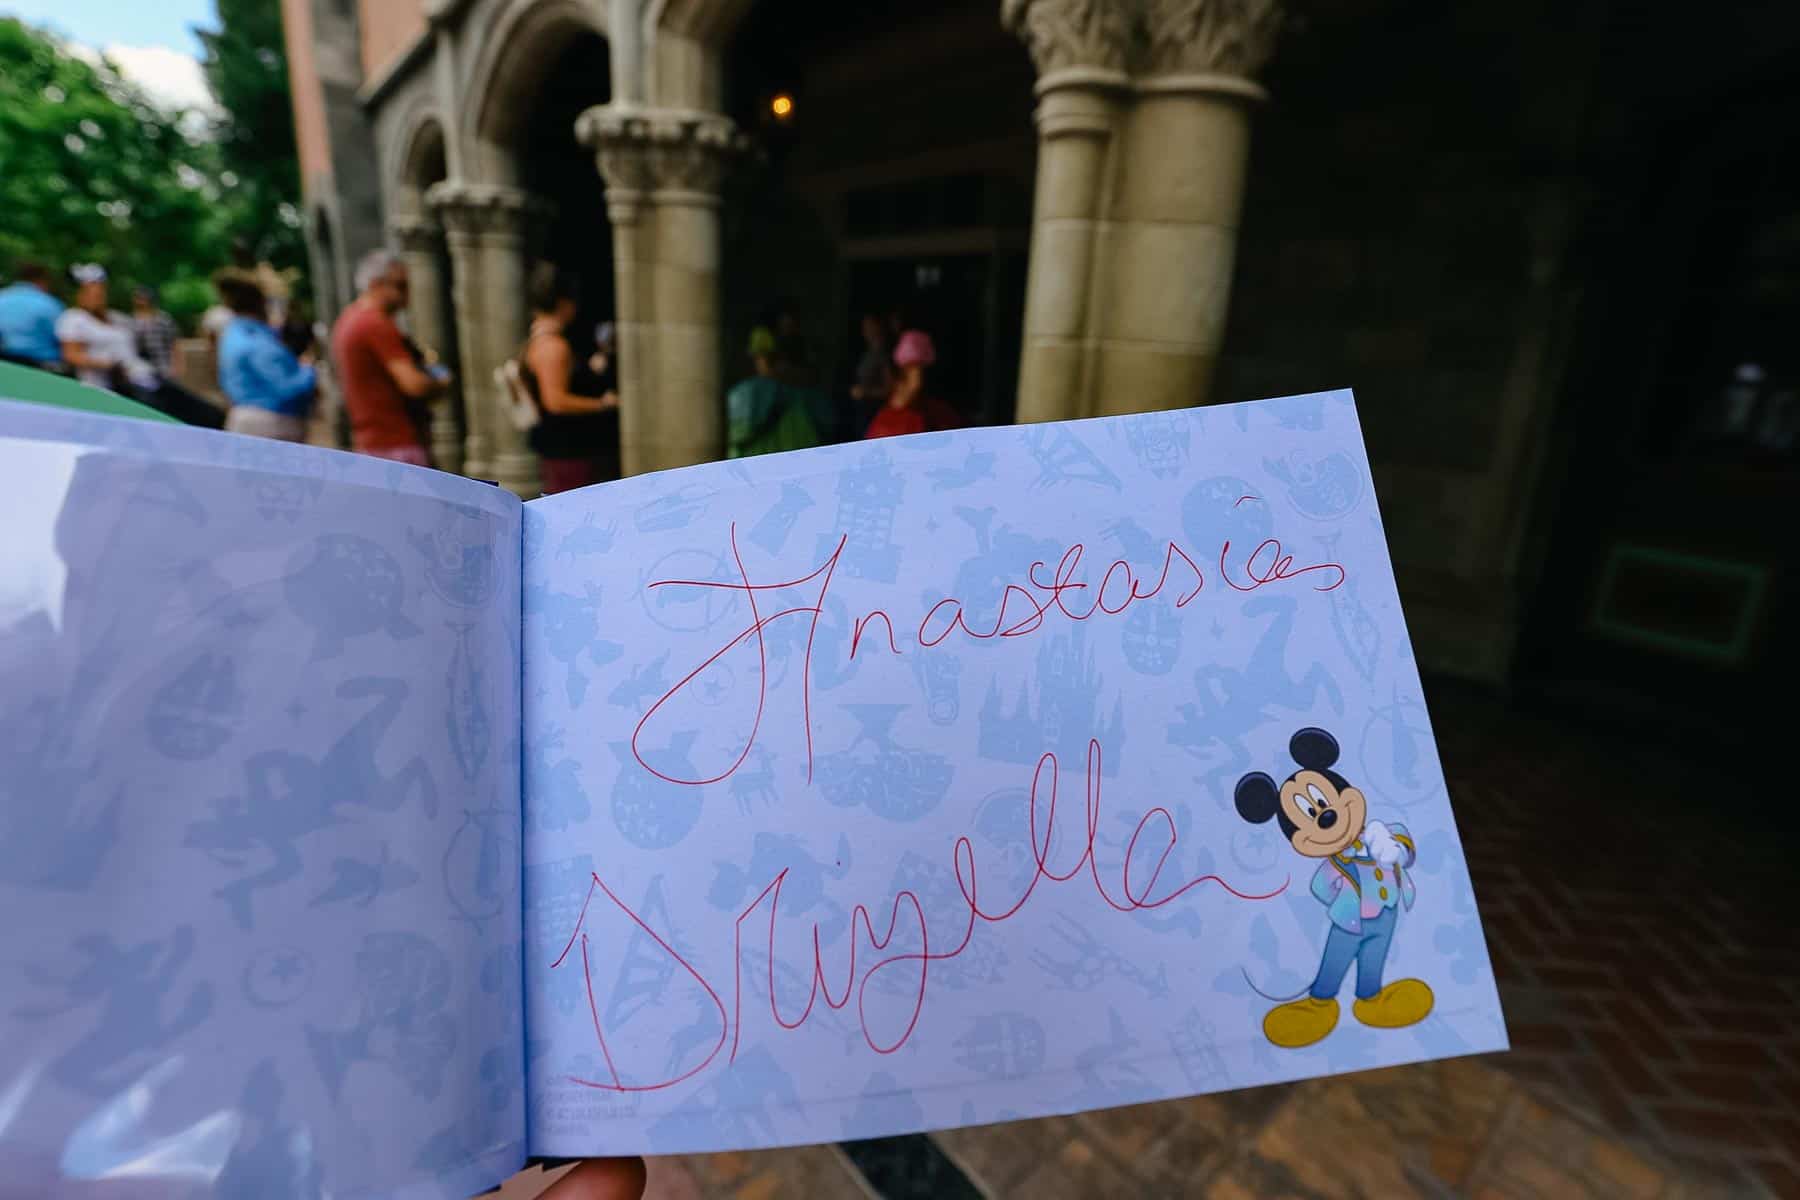 Anastasia
Drizella